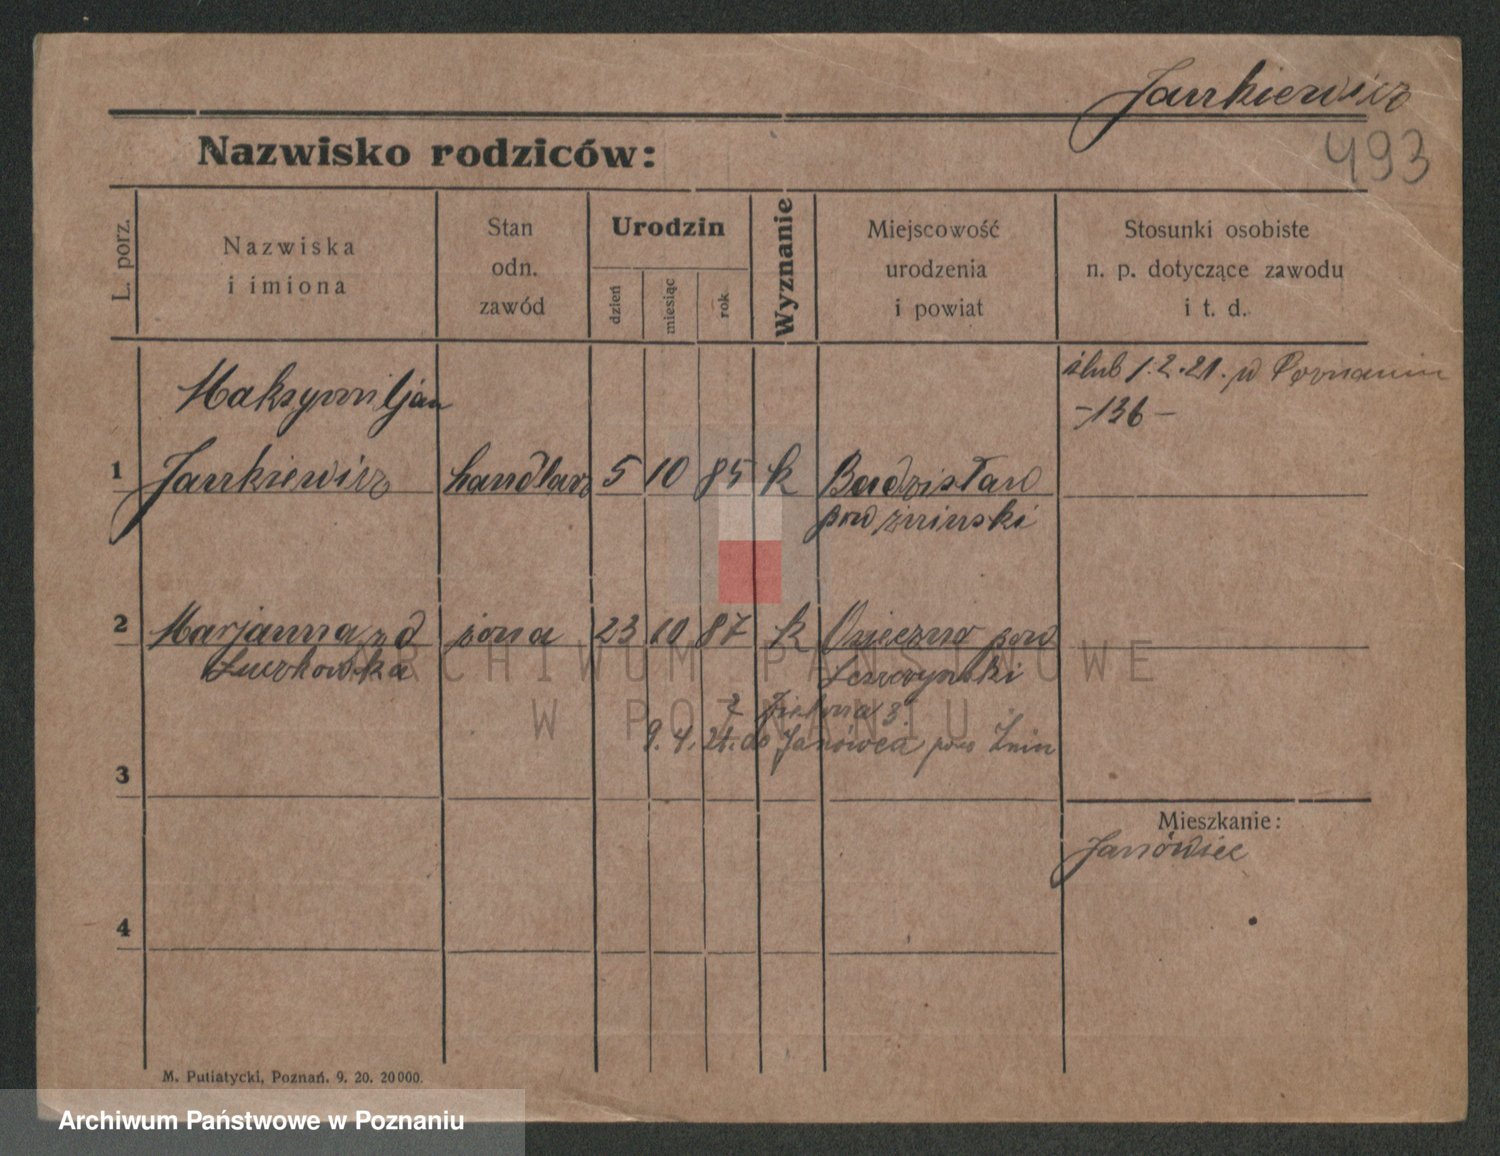 Jankiewicz
493
Nazwisko rodziców:
L. porz.
Nazwiska
i imiona
Stan
odn.
zawód
Urodzin
dzień
miesiąc
rok
Wyznanie
Miejscowość
urodzenia
i powiat
Stosunki osobiste
n. p. dotyczące zawodu
i t. d.
ślub 1.2.21. w Poznaniu
-136-
Maksymiljan
1 Jankiewicz handlarz 5 10 85 k Budzisław
pow żniński
2 Marjanna z d żona 23 10 87 k Osieczno pow
Leszczyński
z Zielona 8
9.4.21. do Janówca pow Żnin
3
Mieszkanie:
Janówiec
4
M. Putiatycki, Poznań. 9. 20. 20000.
ARCHIWUM PAŃSTWOWE
W POZNANIU
Archiwum Państwowe w Poznaniu